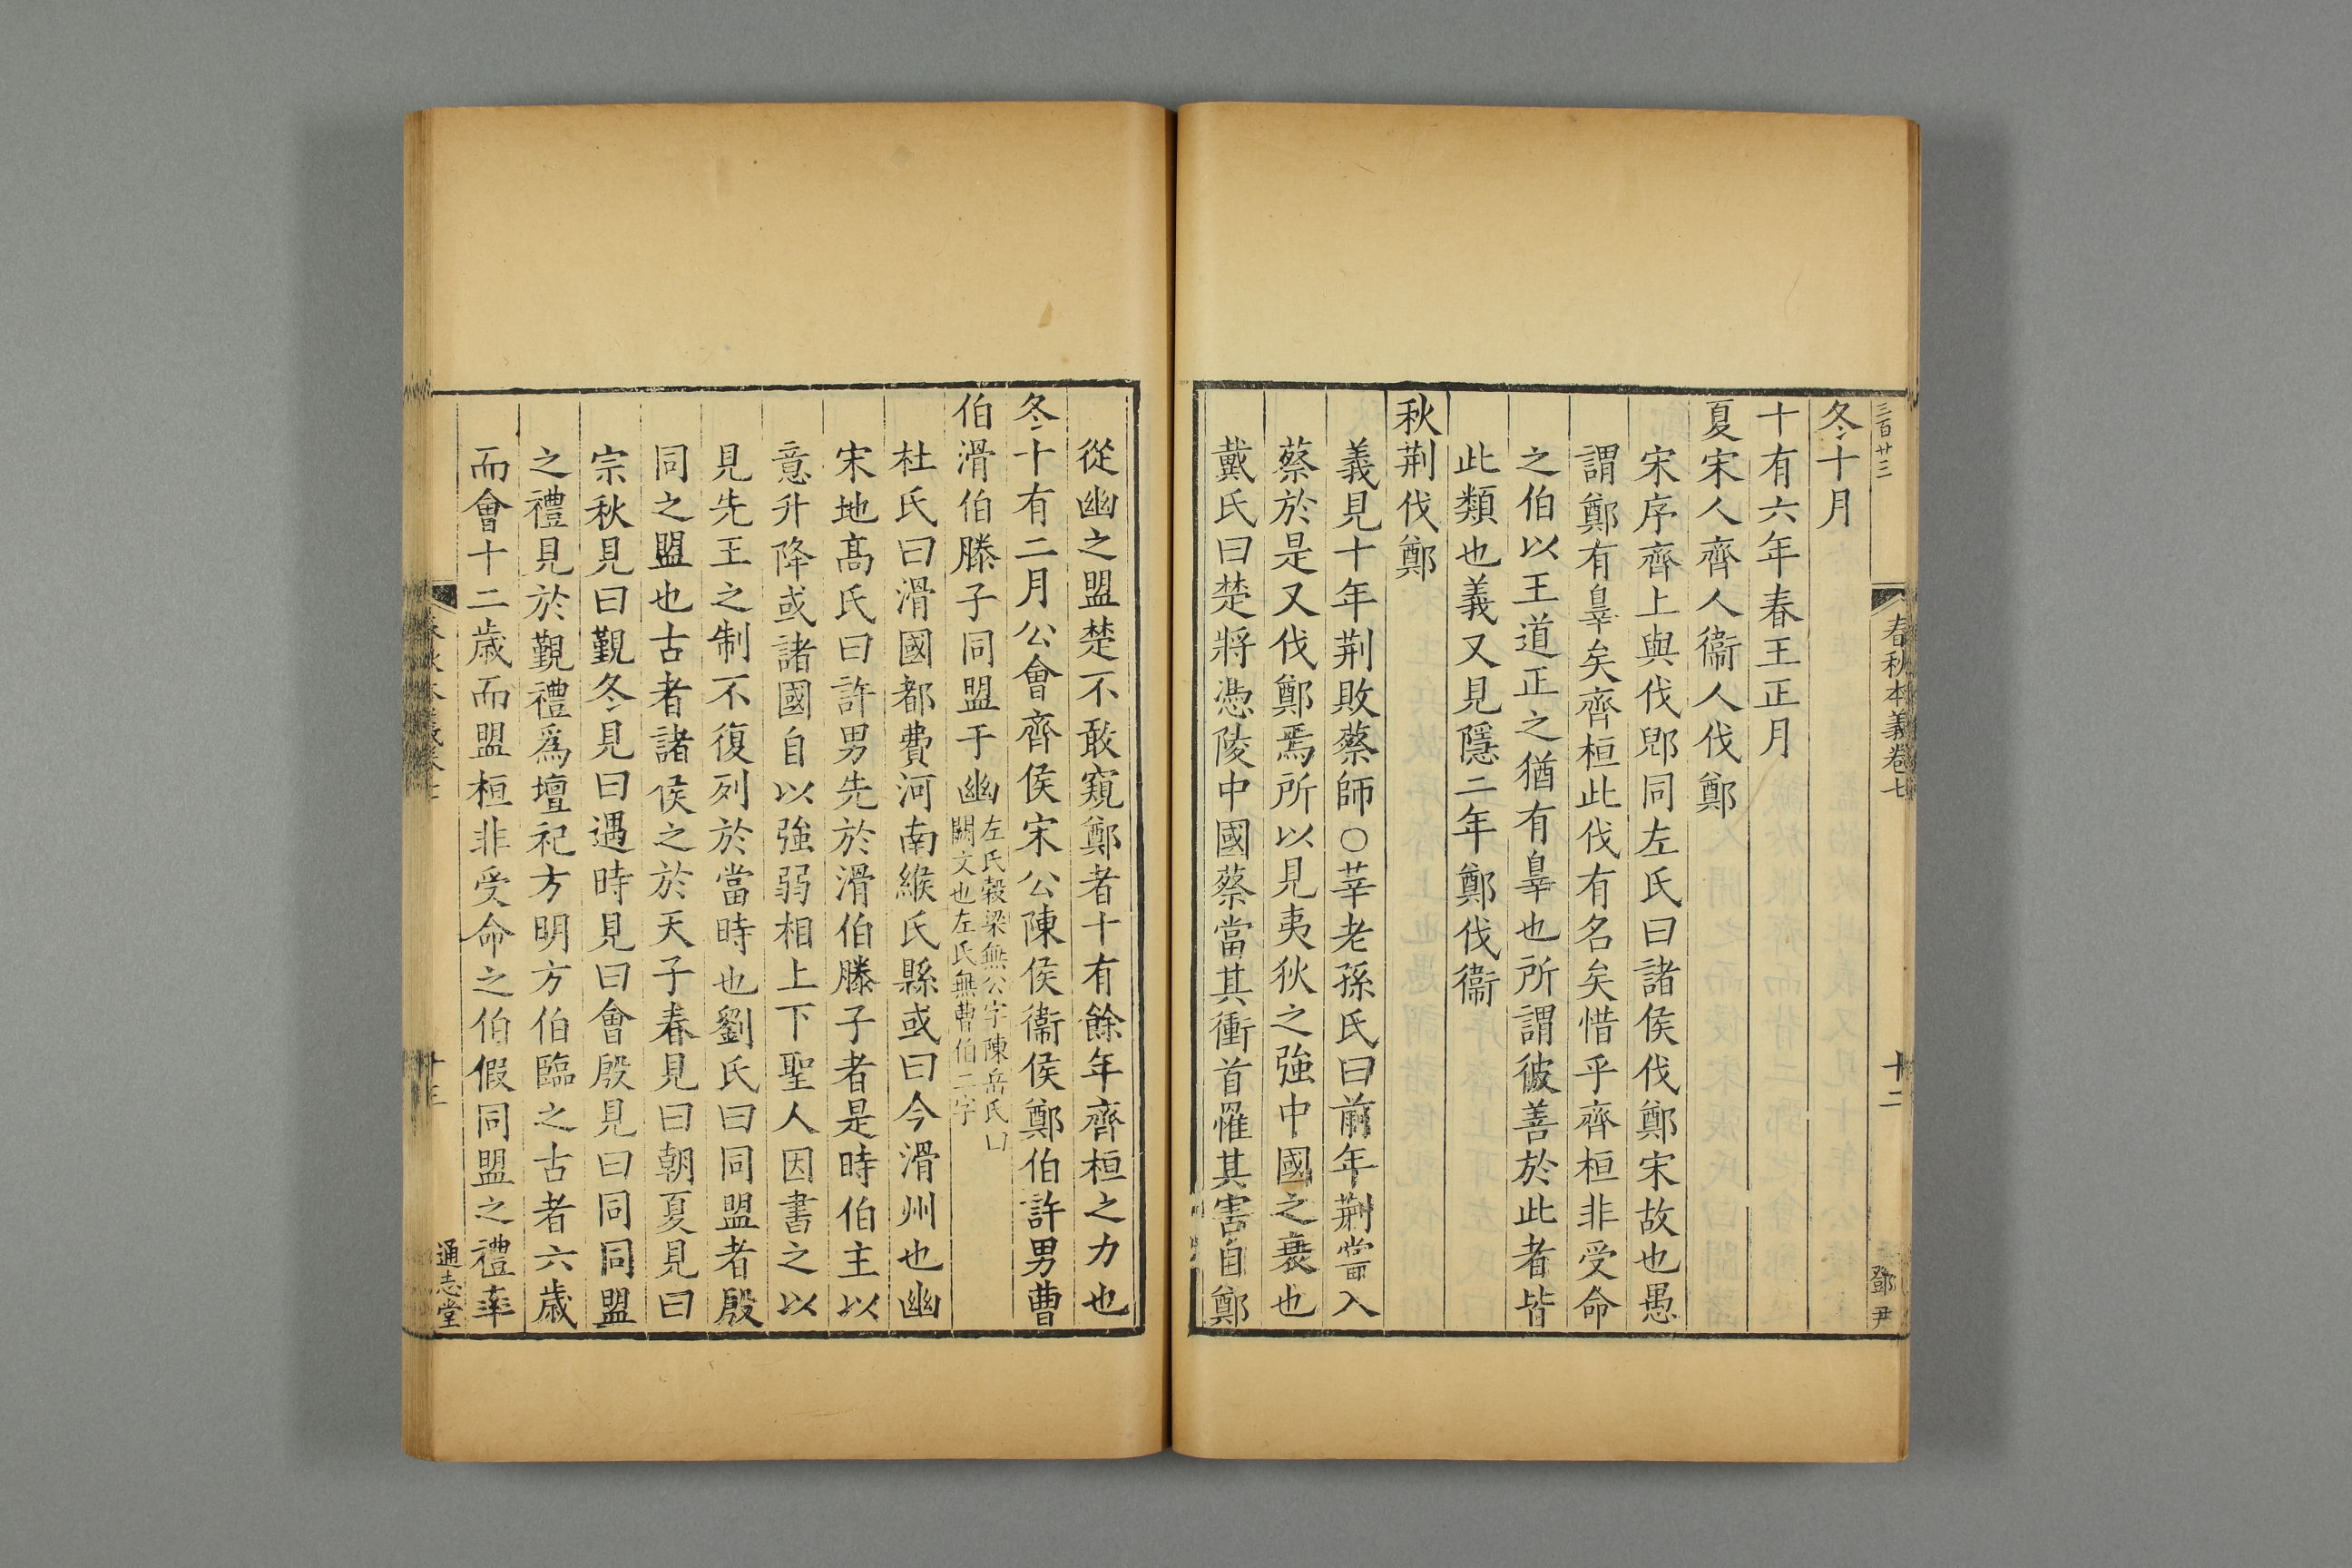 三百廿三
春秋本義卷七
十二
鄧尹
冬十月
十有六年春王正月
夏宋人齊人衞人伐鄭
宋序齊上與伐郳同左氏曰諸侯伐鄭宋故也愚
謂鄭有辠矣齊桓此伐有名矣惜乎齊桓非受命
之伯以王道正之猶有辠也所謂彼善於此者皆
此類也義又見隱二年鄭伐衞
秋荆伐鄭
義見十年荆敗蔡師○莘老孫氏曰前年荆嘗入
蔡於是又伐鄭焉所以見夷狄之強中國之衰也
戴氏曰楚將憑陵中國蔡當其衝首罹其害自鄭
從幽之盟楚不敢窺鄭者十有餘年齊桓之力也
冬十有二月公會齊侯宋公陳侯衞侯鄭伯許男曹
伯滑伯滕子同盟于幽
左氏穀梁無公字陳岳氏曰
闕文也左氏無曹伯二字
杜氏曰滑國都費河南緱氏縣或曰今滑州也幽
宋地髙氏曰許男先於滑伯滕子者是時伯主以
意升降或諸國自以強弱相上下聖人因書之以
見先王之制不復列於當時也劉氏曰同盟者殷
同之盟也古者諸侯之於天子春見曰朝夏見曰
宗秋見曰覲冬見曰遇時見曰會殷見曰同同盟
之禮見於覲禮爲壇祀方明方伯臨之古者六歲
而會十二歲而盟桓非受命之伯假同盟之禮率
十三
通志堂